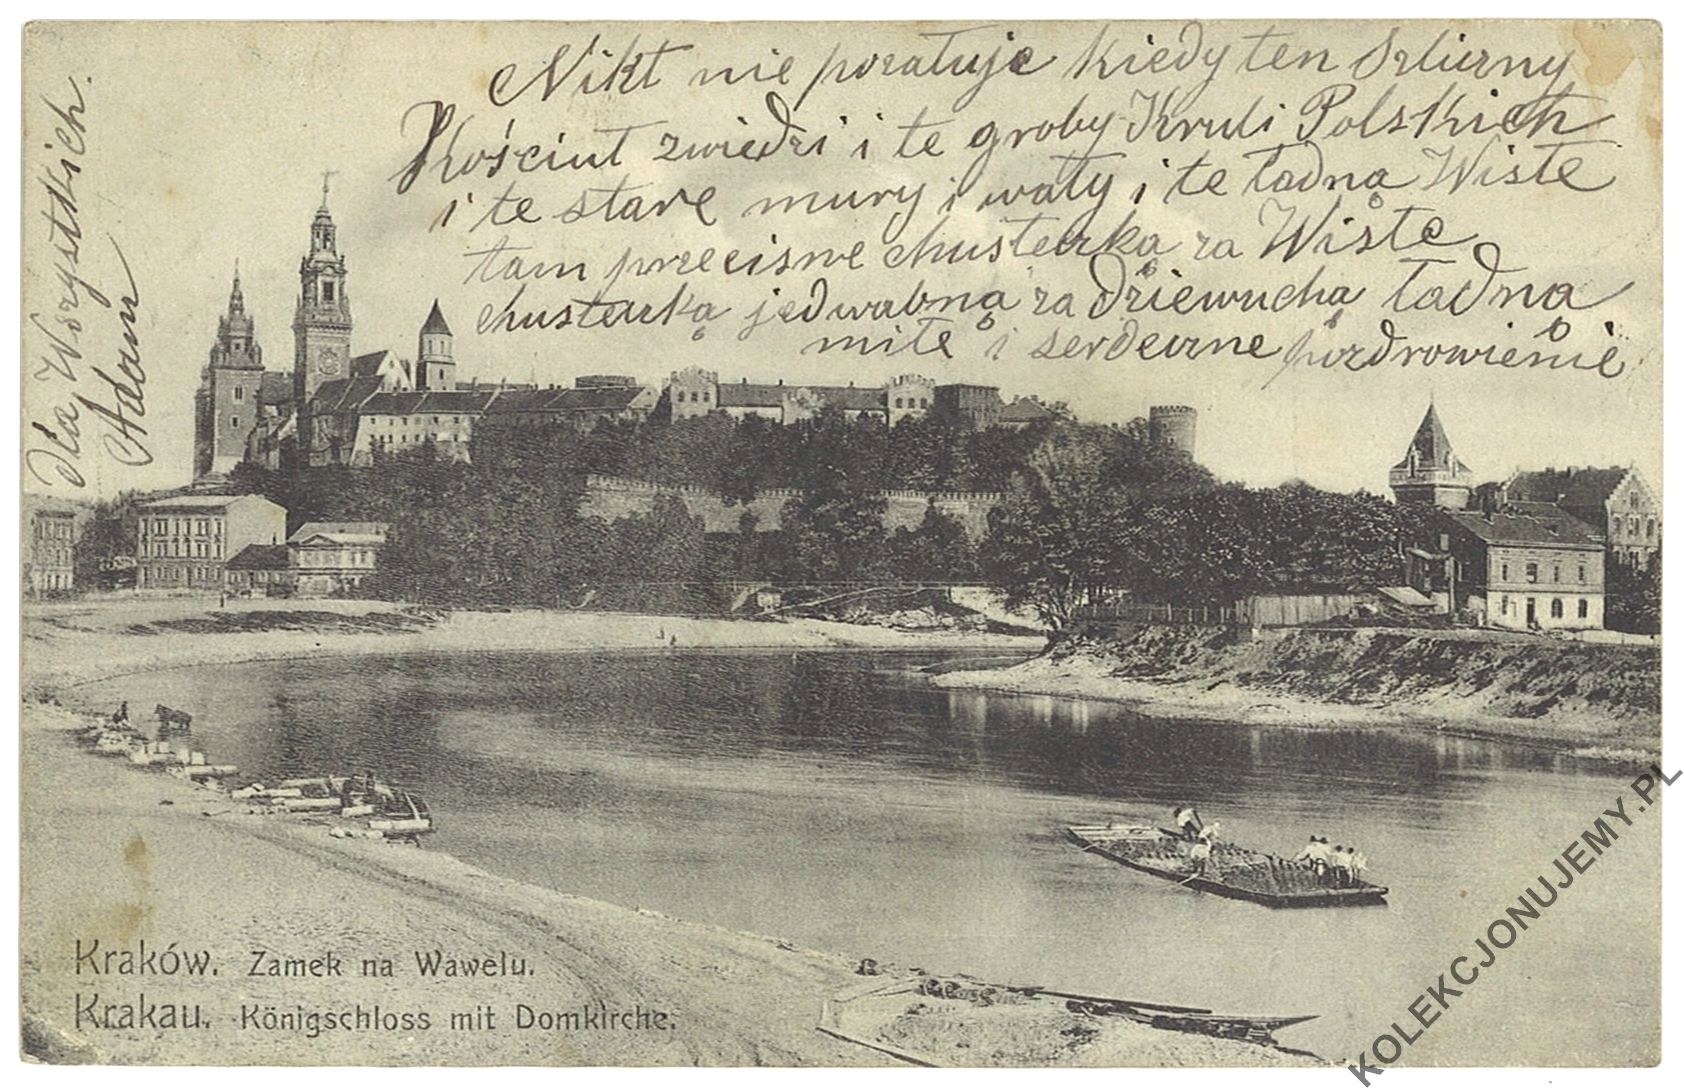 Nikt nie porałuje kiedy ten szlirzny
Kościuł zwiedzi i te groby Kruli Polskich
i te stare mury i wały i te ładną Wisłe
tam przecisne chusteczką za Wisłe
chusteczką jedwabną za dziewuchą ładną
miłe i serdeczne pozdrowienie
Dla Wszystkich.
Adam
Kraków. Zamek na Wawelu.
Krakau. Königschloss mit Domkirche.
KOLEKCJONUJEMY.PL